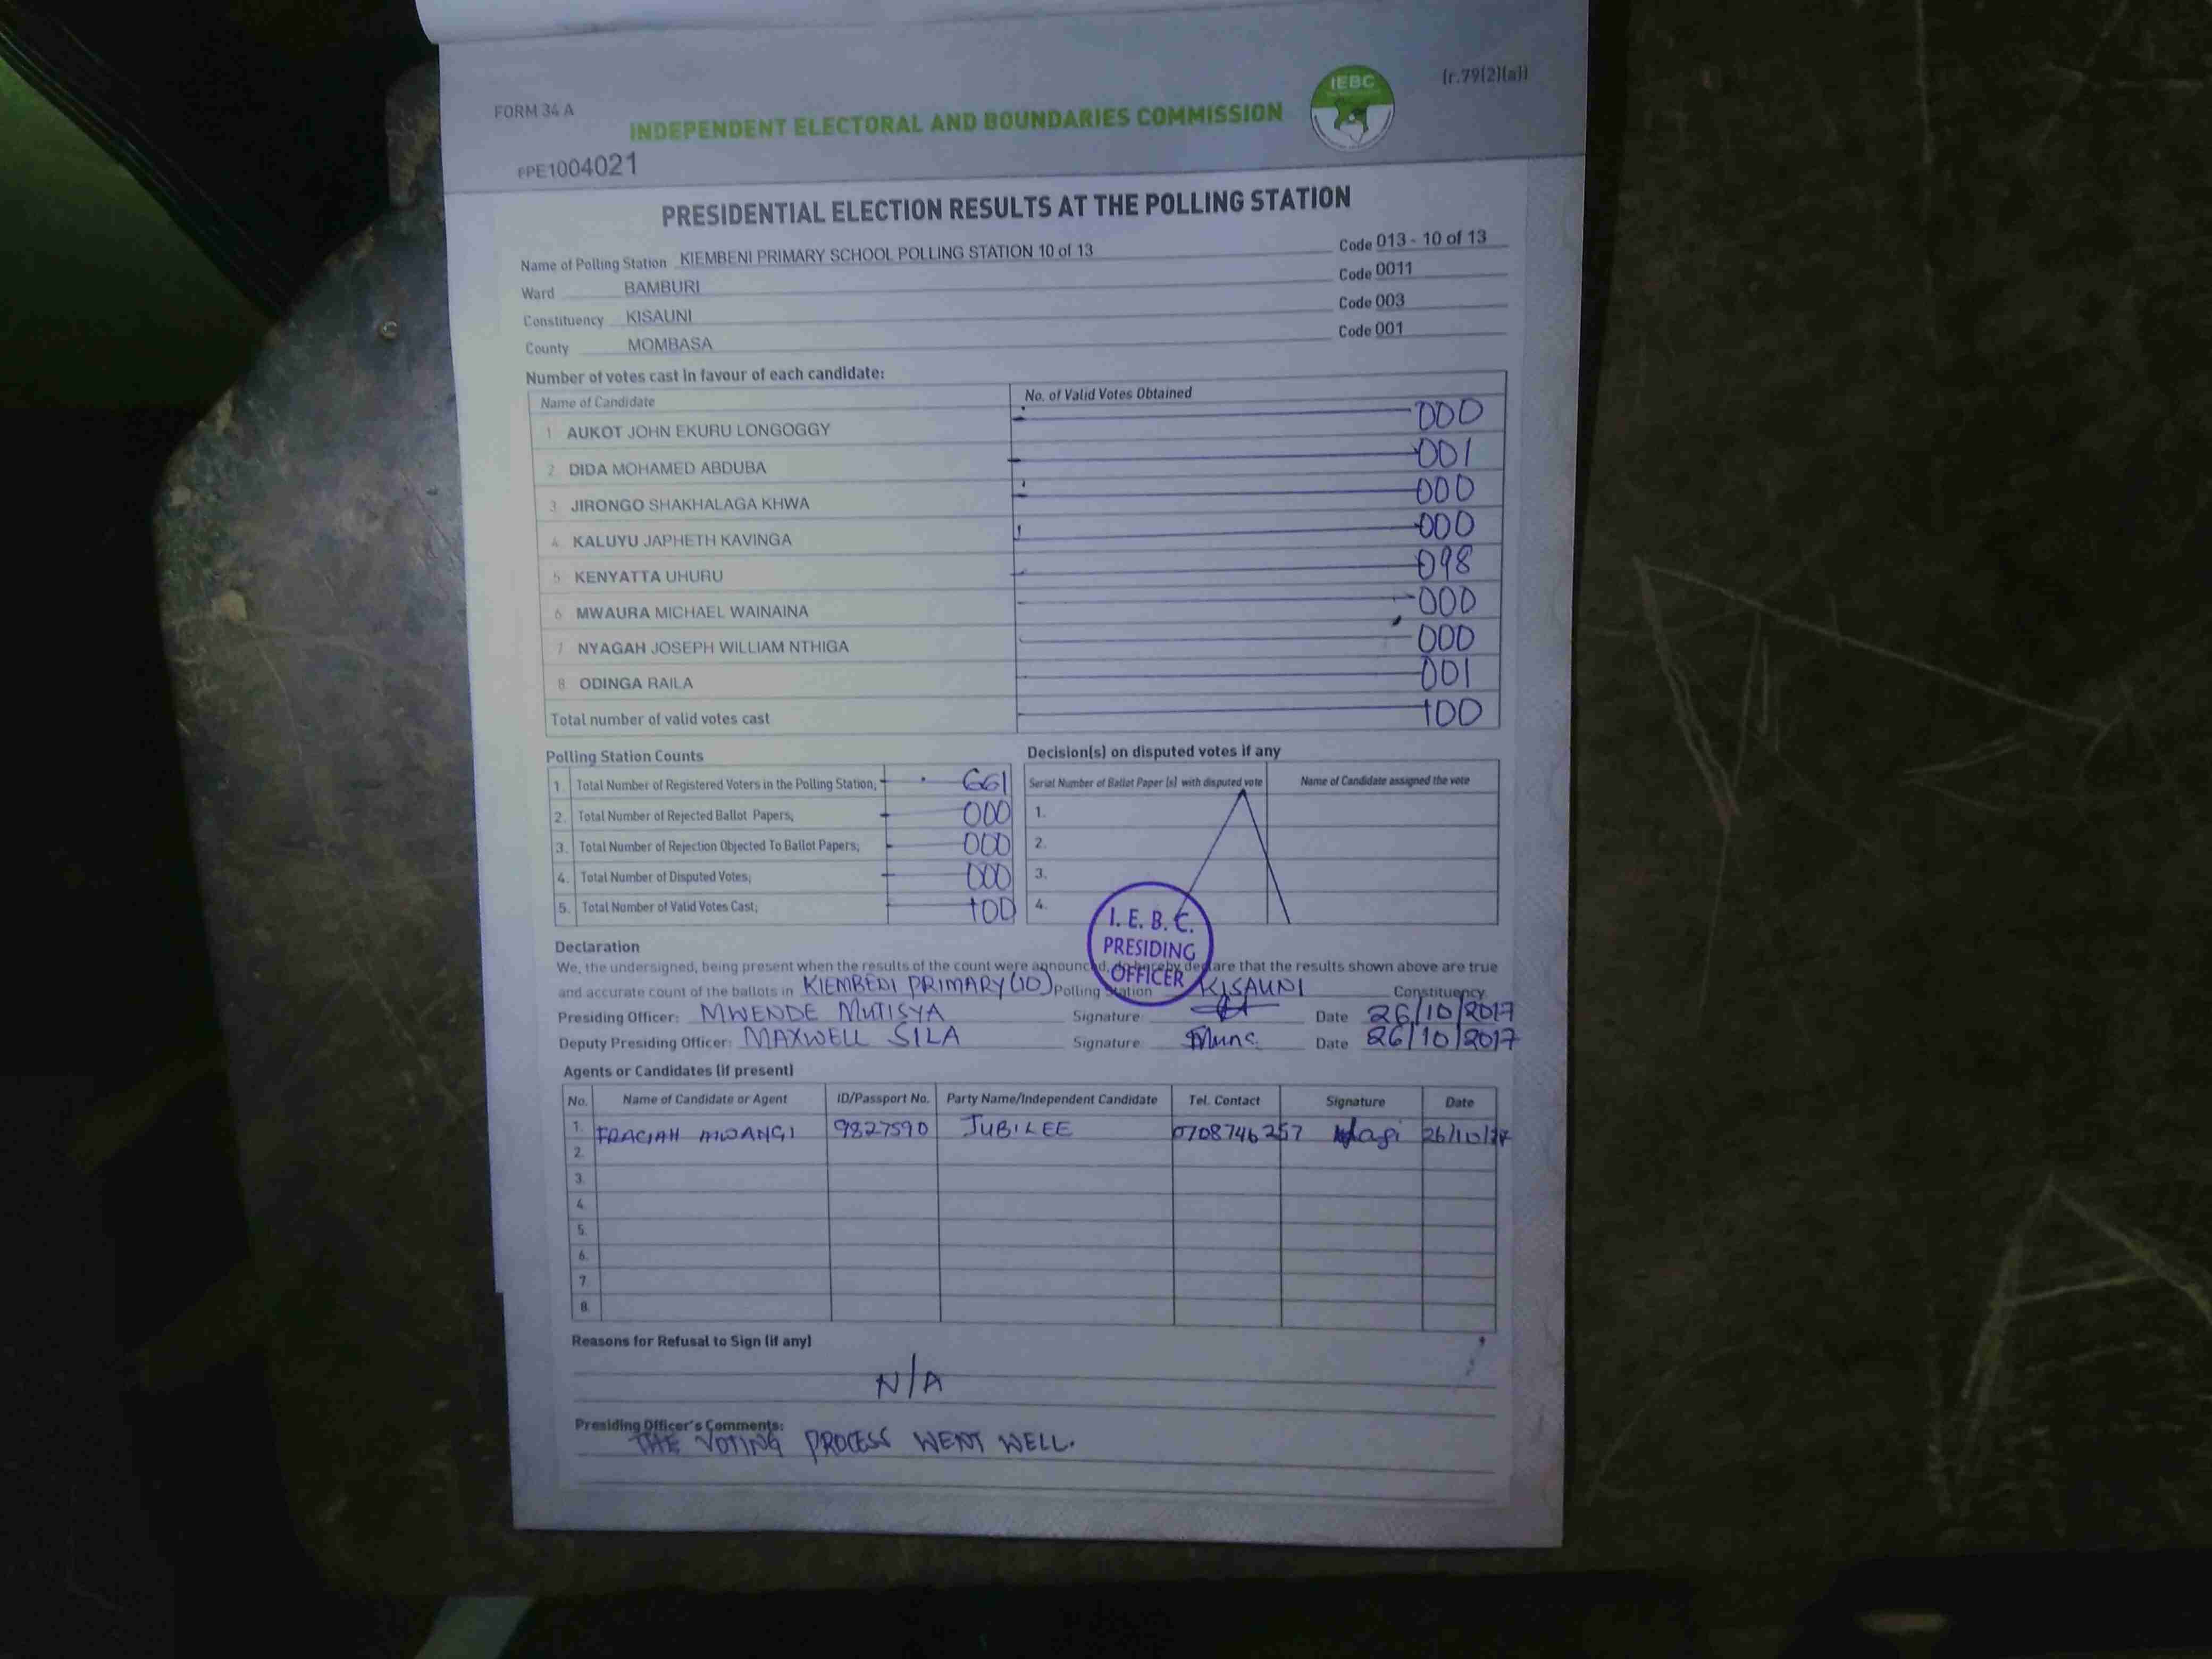 (r.79(2)(a))
IEBC
FORM 34 A
INDEPENDENT ELECTORAL AND BOUNDARIES COMMISSION
FPE1004021
PRESIDENTIAL ELECTION RESULTS AT THE POLLING STATION
Name of Polling Station KIEMBENI PRIMARY SCHOOL POLLING STATION 10 of 13 Code 013 - 10 of 13
Ward BAMBURI Code 0011
Constituency KISAUNI Code 003
County MOMBASA Code 001
Number of votes cast in favour of each candidate:
Name of Candidate No. of Valid Votes Obtained
1 AUKOT JOHN EKURU LONGOGGY 000
2 DIDA MOHAMED ABDUBA 001
3 JIRONGO SHAKHALAGA KHWA 000
4 KALUYU JAPHETH KAVINGA 000
5 KENYATTA UHURU 098
6 MWAURA MICHAEL WAINAINA 000
7 NYAGAH JOSEPH WILLIAM NTHIGA 000
8 ODINGA RAILA 001
Total number of valid votes cast 100
Polling Station Counts
1. Total Number of Registered Voters in the Polling Station; 661
2. Total Number of Rejected Ballot Papers; 000
3. Total Number of Rejection Objected To Ballot Papers; 000
4. Total Number of Disputed Votes; 000
5. Total Number of Valid Votes Cast; 100
Decision(s) on disputed votes if any
Serial Number of Ballot Paper (s) with disputed vote Name of Candidate assigned the vote
1.
2.
3.
4.
I. E. B. C.
PRESIDING
OFFICER
Declaration
We, the undersigned, being present when the results of the count were announced, do hereby declare that the results shown above are true
and accurate count of the ballots in KIEMBENI PRIMARY (10) Polling Station KISAUNI Constituency
Presiding Officer: MWENDE MUTISYA Signature Date 26/10/2017
Deputy Presiding Officer: MAXWELL SILA Signature Date 26/10/2017
Agents or Candidates (if present)
No. Name of Candidate or Agent ID/Passport No. Party Name/Independent Candidate Tel. Contact Signature Date
1. FRACIAH MWANGI 9827590 JUBILEE 0708746257 26/10/17
2.
3.
4.
5.
6.
7.
8.
Reasons for Refusal to Sign (if any)
N/A
Presiding Officer's Comments:
THE VOTING PROCESS WENT WELL.